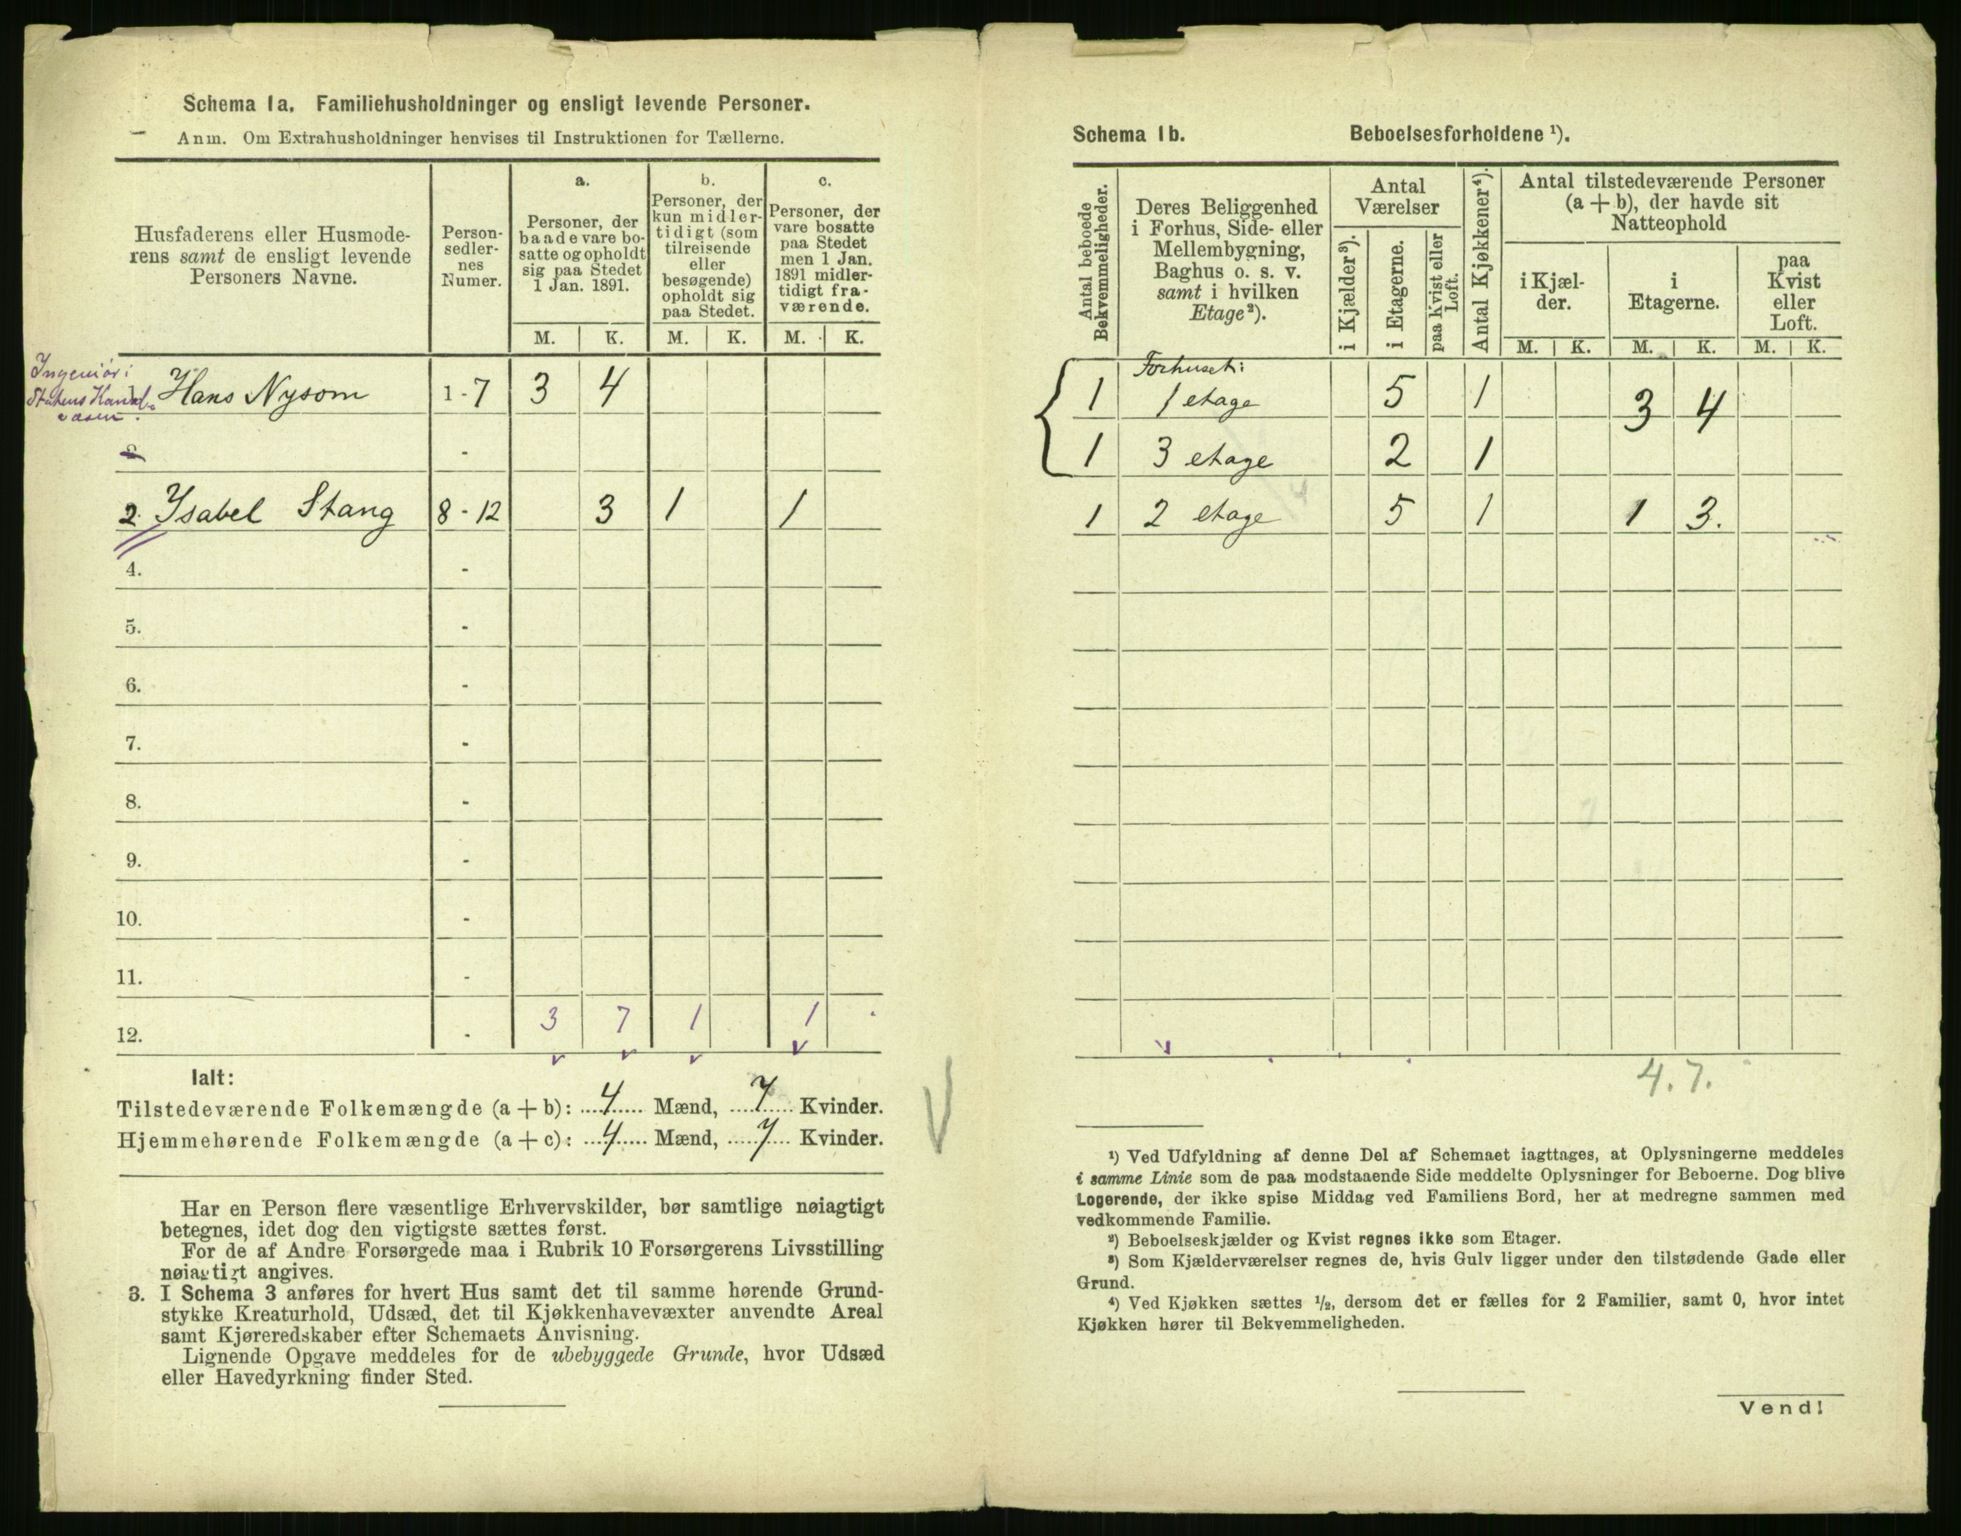 Schema 1a. Familiehusholdninger og ensligt levende Personer.
Anm. Om Extrahusholdninger henvises til Instruktionen for Tællerne.
Husfaderens eller Husmode-
rens samt de ensligt levende
Personers Navne.
Person-
sedler-
nes
Numer.
a.
Personer, der
baade vare bo-
satte og opholdt
sig paa Stedet
1 Jan. 1891.
b.
Personer, der
kun midler-
tidigt (som
tilreisende
eller
besøgende)
opholdt sig
paa Stedet.
c.
Personer, der
vare bosatte
paa Stedet
men 1 Jan.
1891 midler-
tidigt fra-
værende.
M. K. M. K. M. K.
Ingeniør i
Statens Kanal-
væsen.
Hans Nysom 1-7 3 4
2 -
2. Ysabel Stang 8-12 3 1 1
4. -
5. -
6. -
7. -
8. -
9. -
10. -
11. -
12. - 3 7 1 1
Ialt:
Tilstedeværende Folkemængde (a + b): 4 Mænd, 7 Kvinder.
Hjemmehørende Folkemængde (a + c): 4 Mænd, 7 Kvinder.
Har en Person flere væsentlige Erhvervskilder, bør samtlige nøiagtigt
betegnes, idet dog den vigtigste sættes først.
For de af Andre Forsørgede maa i Rubrik 10 Forsørgerens Livsstilling
nøiagtigt angives.
3. I Schema 3 anføres for hvert Hus samt det til samme hørende Grund-
stykke Kreaturhold, Udsæd, det til Kjøkkenhavevæxter anvendte Areal
samt Kjøreredskaber efter Schemaets Anvisning.
Lignende Opgave meddeles for de ubebyggede Grunde, hvor Udsæd
eller Havedyrkning finder Sted.
Schema 1b. Beboelsesforholdene ¹).
Antal beboede
Bekvemmeligheder.
Deres Beliggenhed
i Forhus, Side- eller
Mellembygning,
Baghus o. s. v.
samt i hvilken
Etage²).
Antal
Værelser
i Kjælder³).
i Etagerne.
paa Kvist eller
Loft.
Antal Kjøkkener⁴).
Antal tilstedeværende Personer
(a + b), der havde sit
Natteophold
i Kjæl-
der.
i
Etagerne.
paa
Kvist
eller
Loft.
M. K. M. K. M. K.
Forhuset:
1 1 etage 5 1 3 4
1 3 etage 2 1
1 2 etage 5 1 1 3.
4. 7.
¹) Ved Udfyldning af denne Del af Schemaet iagttages, at Oplysningerne meddeles
i samme Linie som de paa modstaaende Side meddelte Oplysninger for Beboerne. Dog blive
Logerende, der ikke spise Middag ved Familiens Bord, her at medregne sammen med
vedkommende Familie.
²) Beboelseskjælder og Kvist regnes ikke som Etager.
³) Som Kjælderværelser regnes de, hvis Gulv ligger under den tilstødende Gade eller
Grund.
⁴) Ved Kjøkken sættes ½, dersom det er fælles for 2 Familier, samt 0, hvor intet
Kjøkken hører til Bekvemmeligheden.
Vend!